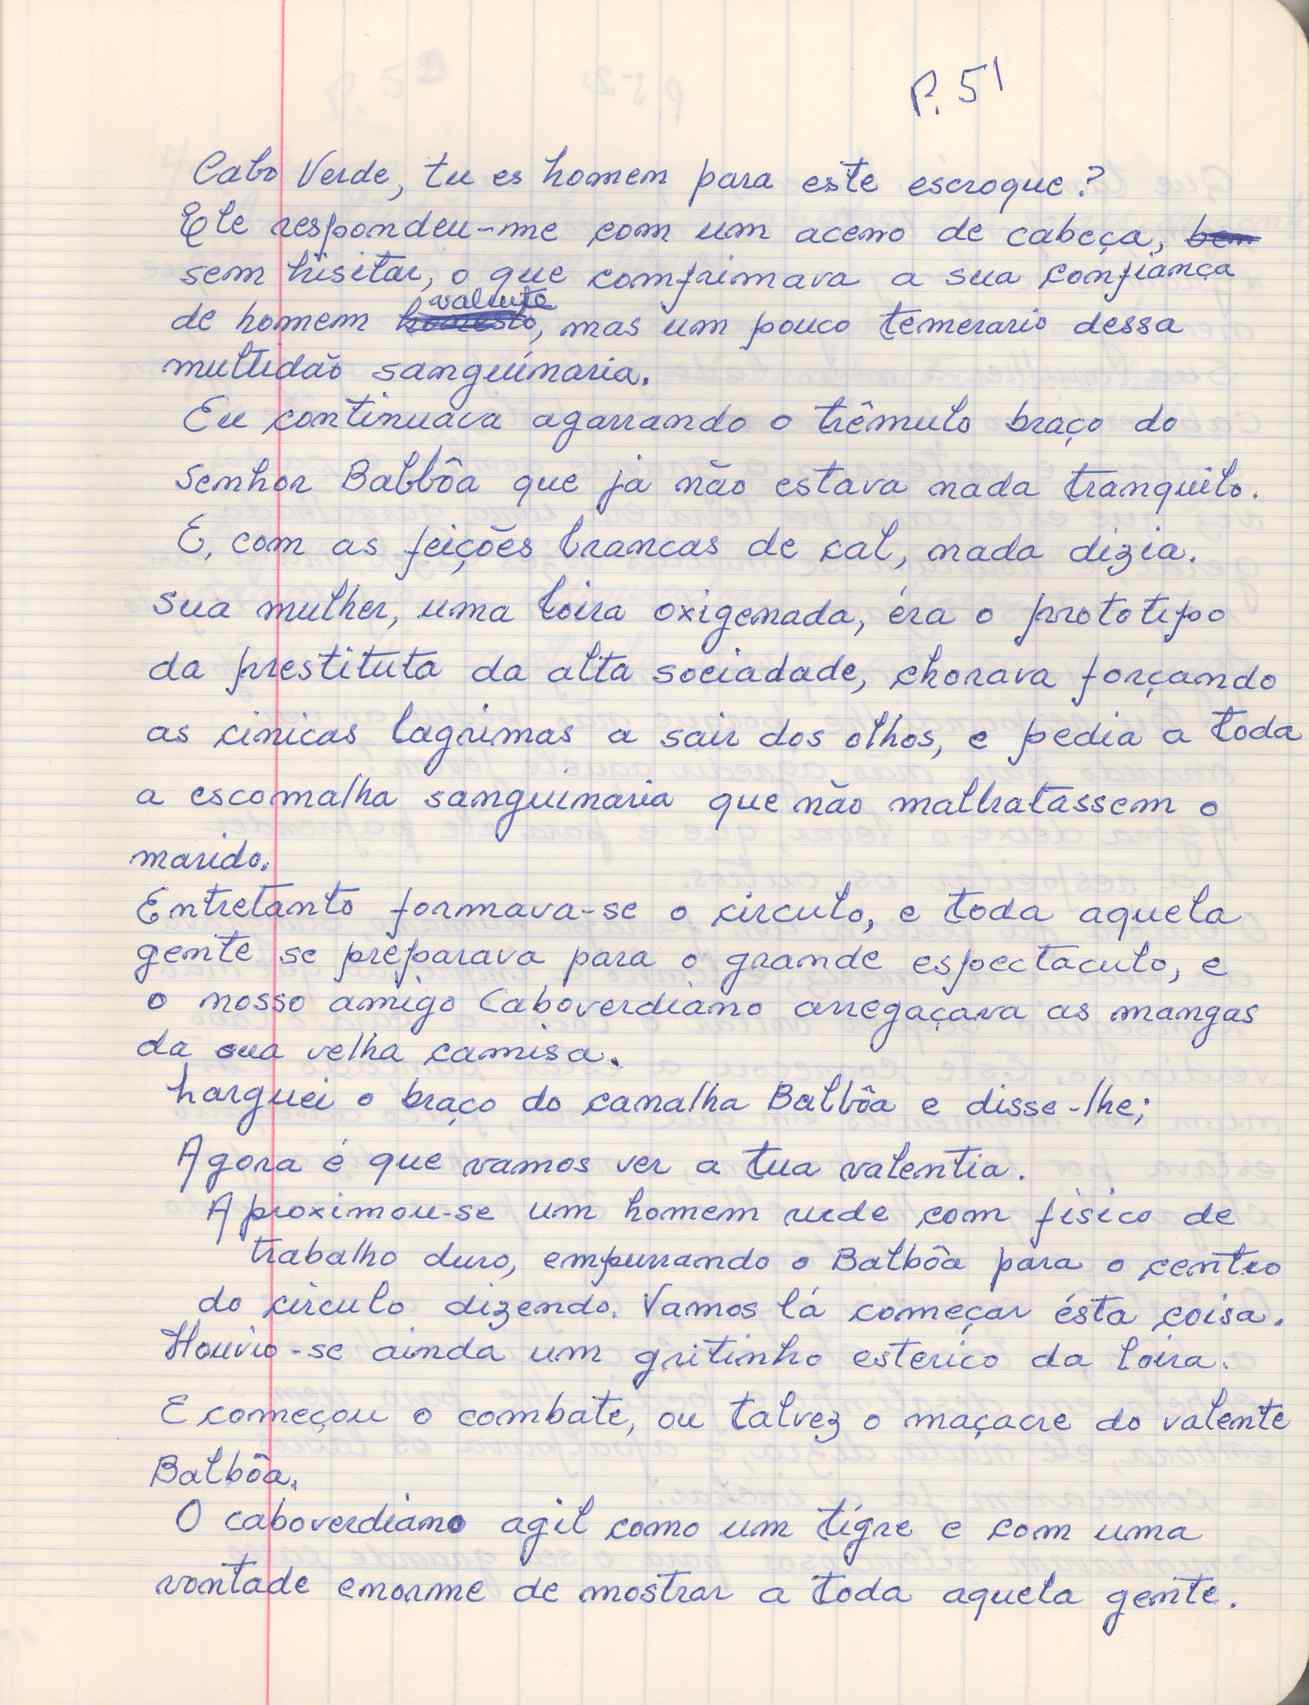 P. 51
Cabo Verde, tu es homem para este escroque?
Ele respondeu-me com um aceno de cabeça, bem
sem hisitar, o que comfrimava a sua confiança
valente
de homem honesto, mas um pouco temerario dessa
multidão sanguínaria.
Eu continuava agarrando o trêmulo braço do
senhor Balbôa que ja não estava nada tranquilo.
E, com as feições brancas de cal, nada dizia.
sua mulher, uma loira oxigenada, éra o prototipo
da prestituta da alta sociadade, chorava forçando
as cinicas lagrimas a sair dos olhos, e pedia a toda
a escomalha sanguinaria que não maltratassem o
marido.
Entretanto formava-se o circulo, e toda aquela
gente se preparava para o grande espectaculo, e
o nosso amigo Caboverdiano arregaçava as mangas
da sua velha camisa.
Larguei o braço do canalha Balbôa e disse-lhe;
Agora é que vamos ver a tua valentia.
Aproximou-se um homem rude com fisico de
trabalho duro, empurrando o Balbôa para o centro
do circulo dizendo. Vamos lá começar ésta coisa.
Houvio-se ainda um gritinho esterico da loira.
E começou o combate, ou talvez o maçacre do valente
Balbôa.
O caboverdiano agil como um tigre e com uma
vontade enorme de mostrar a toda aquela gente.